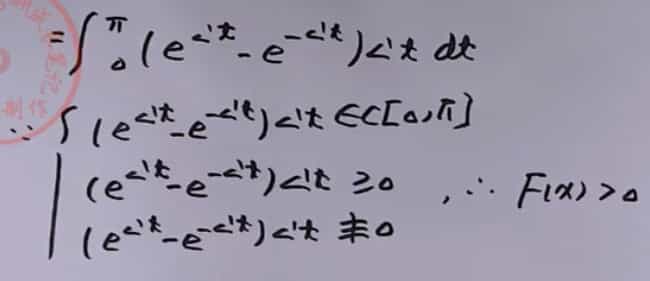 =∫₀^π (e^{<'t} - e^{-<'t})<'t dt
∵ { (e^{<'t} - e^{-<'t})<'t ∈ C[0,π]
(e^{<'t} - e^{-<'t})<'t ≥0 , ∴ F(x)>0
(e^{<'t} - e^{-<'t})<'t ≢0
制作